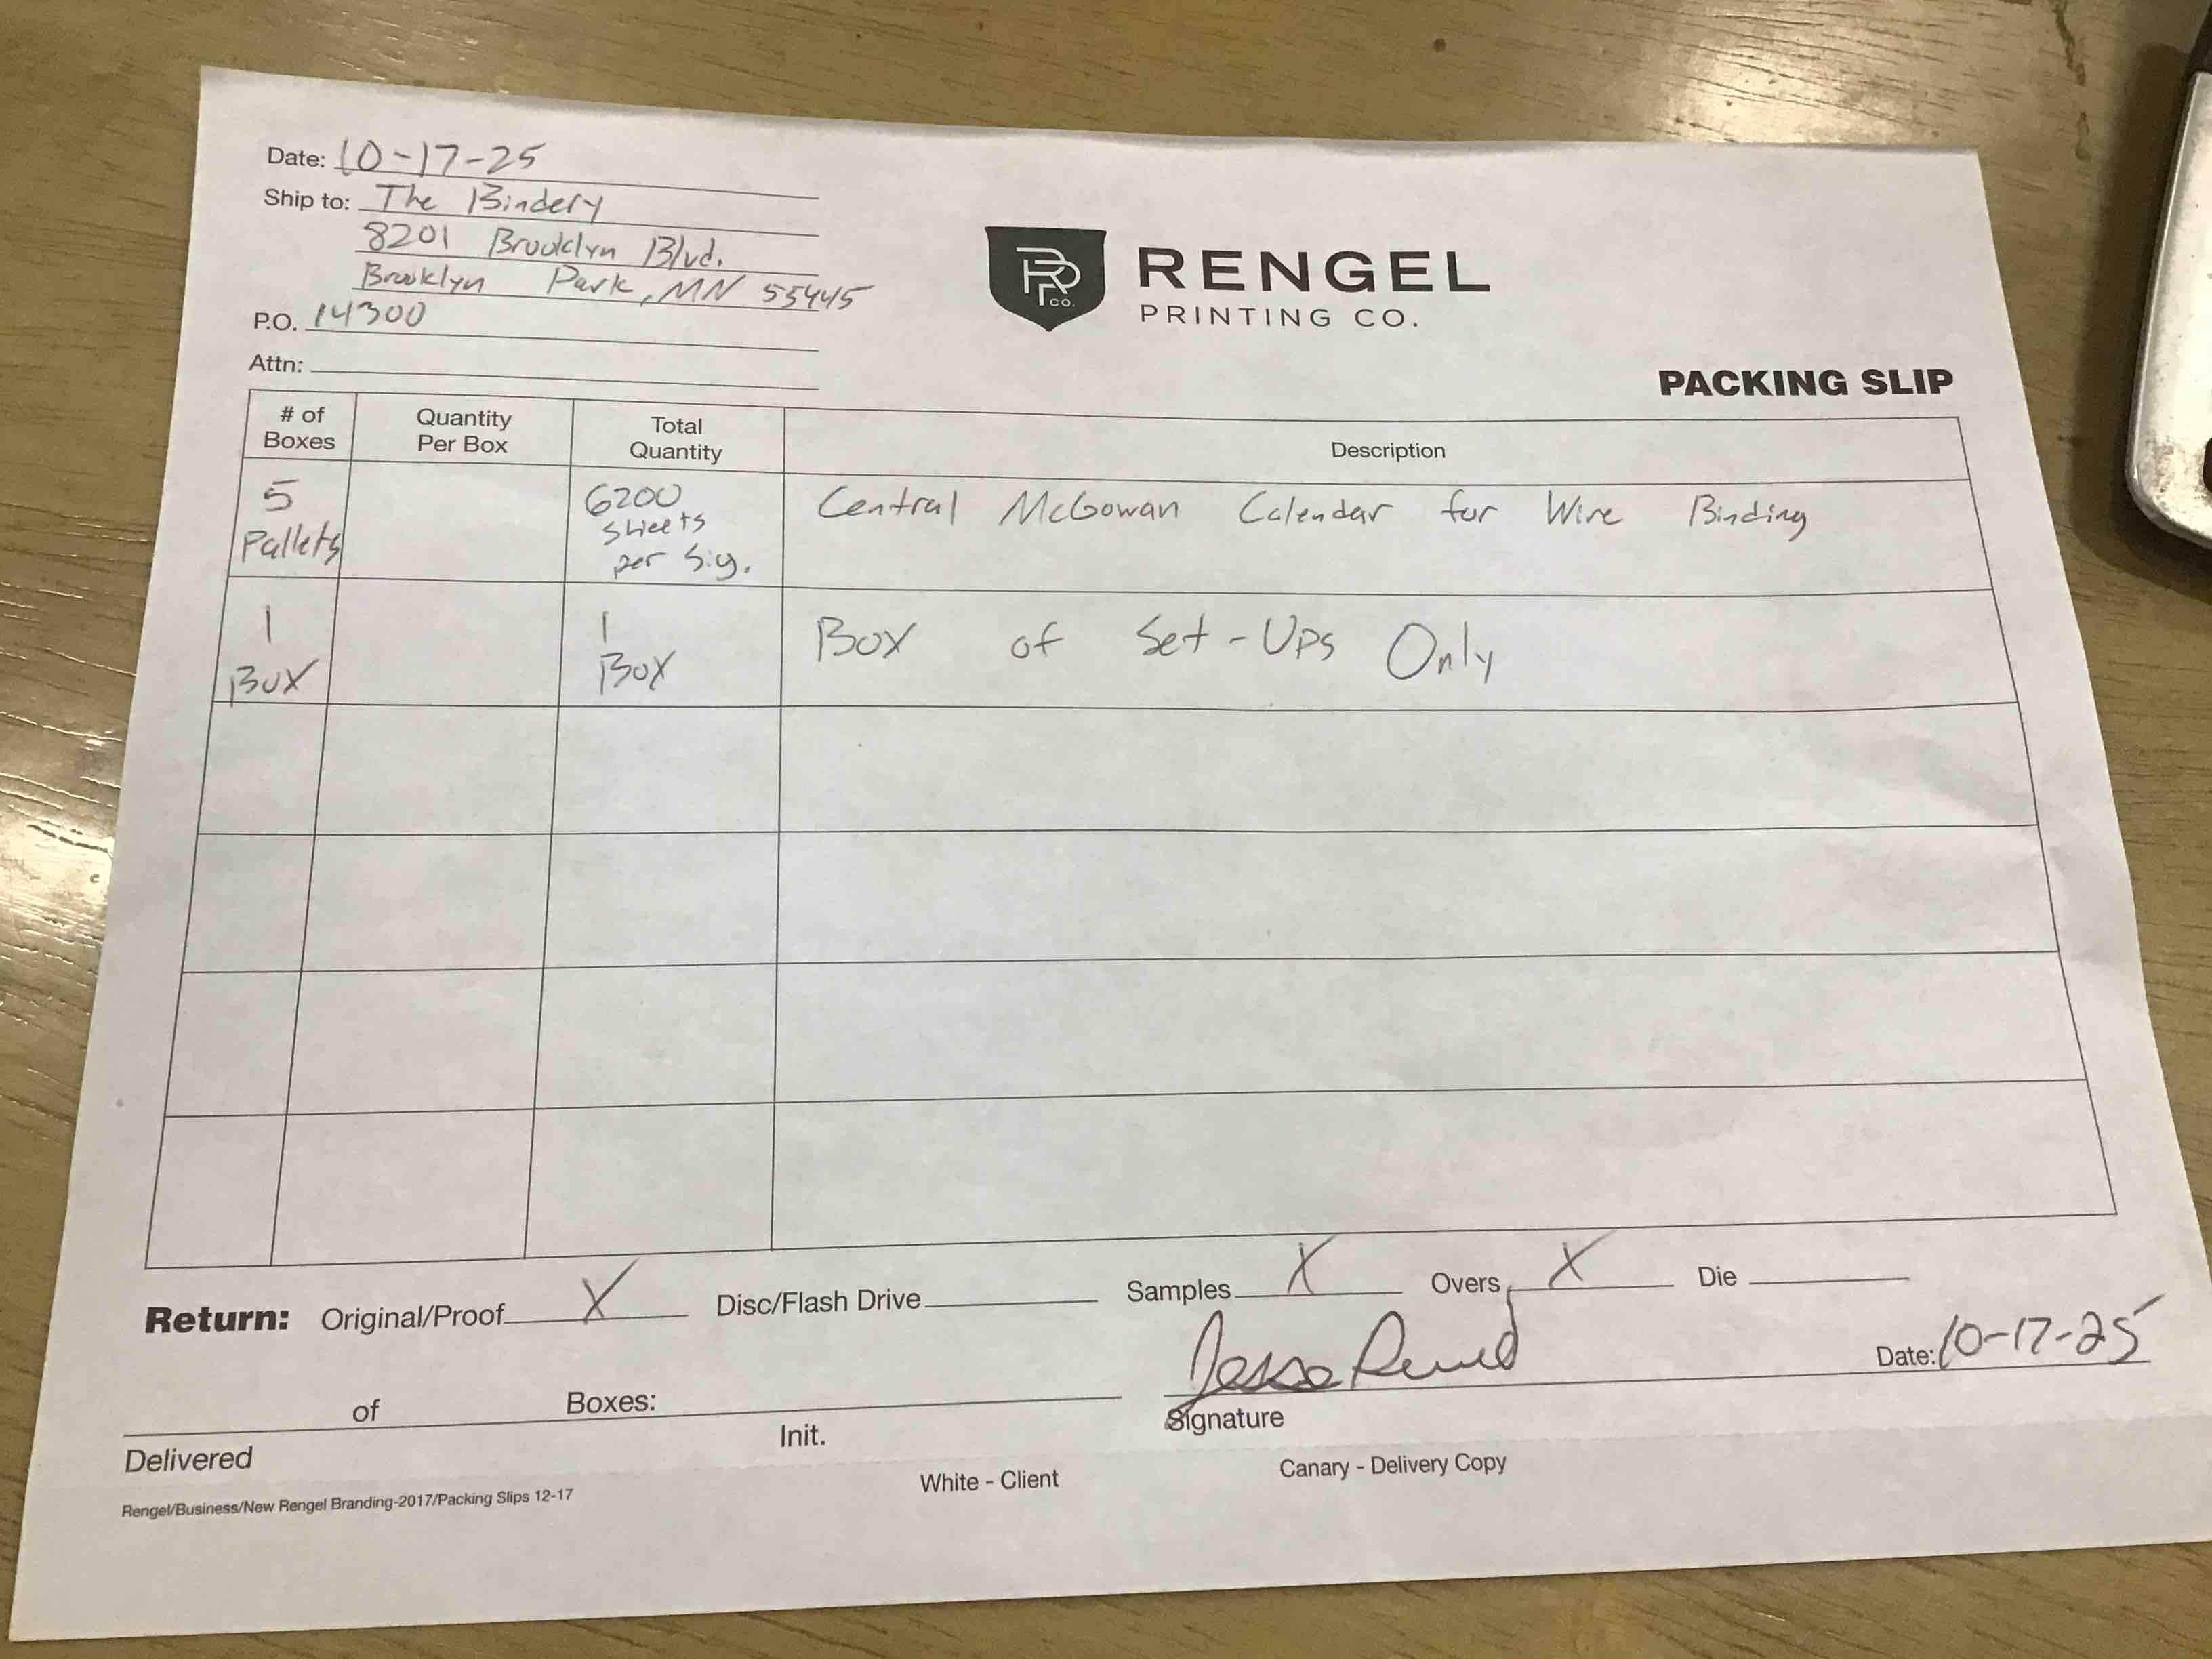 Date: 10-17-25
Ship to: The Bindery
8201 Brooklyn Blvd.
Brooklyn Park, MN 55445
P.O. 14300
Attn:
RP CO.
RENGEL
PRINTING CO.
PACKING SLIP
# of Boxes Quantity Per Box Total Quantity Description
5 Pallets 6200 sheets per sig. Central McGowan Calendar for Wire Binding
1 Box 1 Box Box of Set-Ups Only
Return: Original/Proof X Disc/Flash Drive Samples X Overs X Die
of Boxes: Jesse Date: 10-17-25
Delivered Init. Signature
White - Client Canary - Delivery Copy
Rengel/Business/New Rengel Branding-2017/Packing Slips 12-17